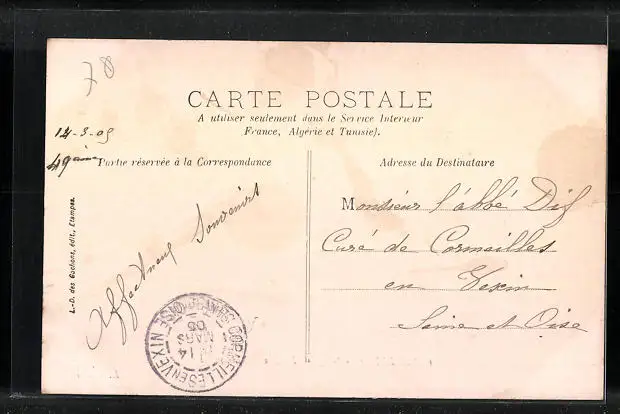 78
CARTE POSTALE
A utiliser seulement dans le Service Interieur
France, Algérie et Tunisie).
14-3-05
Partie réservée à la Correspondance
Adresse du Destinataire
L.-D. des Gachons, édit., Etampes.
Affectueux Souvenirs
Monsieur l'abbé
Curé de Cormeilles
en Vexin
Seine et Oise
CORMEILLES EN VEXIN
SEINE-ET-OISE
14
MARS
05